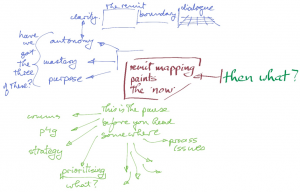 the remit
clarify
boundary
dialogue
have
we
got
the
three
of these?
autonomy
mastery
purpose
remit mapping
paints
the 'now'
then what?
This is the pause
before you lead
somewhere
comms
plug
strategy
process
issues
prioritising
what?